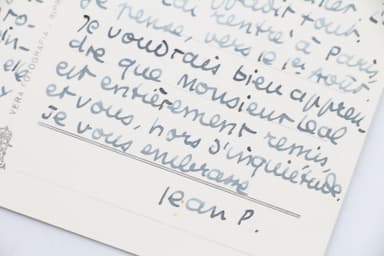 voir tout.
rentré à Paris,
je pense, vers le 1er Août.
Je voudrais bien appren-
dre que Monsieur Leal
est entièrement remis
et vous, hors d'inquiétude.
Je vous embrasse
Jean P.
ro-
in-
VERA FOTOGRAFIA